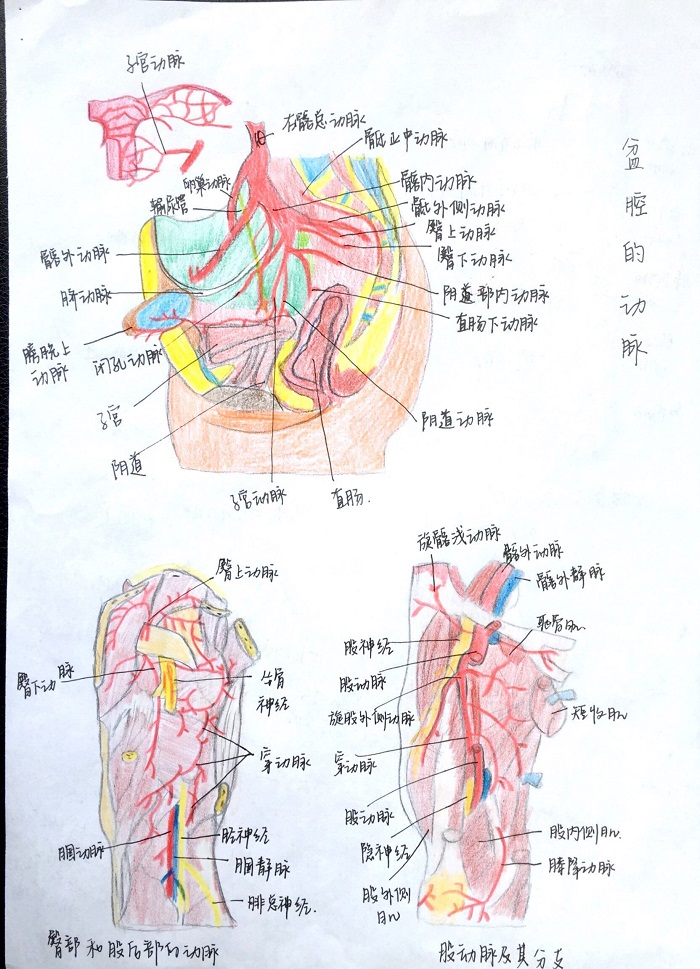 子宫动脉
右髂总动脉
骶正中动脉
卵巢动脉
输尿管
髂内动脉
骶外侧动脉
臀上动脉
臀下动脉
髂外动脉
脐动脉
阴道部内动脉
直肠下动脉
膀胱上
动脉
闭孔动脉
子宫
阴道
子宫动脉
直肠.
阴道动脉
盆腔的动脉
臀上动脉
臀下动脉
坐骨
神经
穿动脉
胫神经
腘动脉
腘静脉
腓总神经.
臀部和股后部的动脉
旋髂浅动脉
髂外动脉
髂外静脉
股神经
耻骨肌
股动脉
旋股外侧动脉
短收肌
穿动脉
股动脉
隐神经
股内侧肌
膝降动脉
股外侧
肌
股动脉及其分支